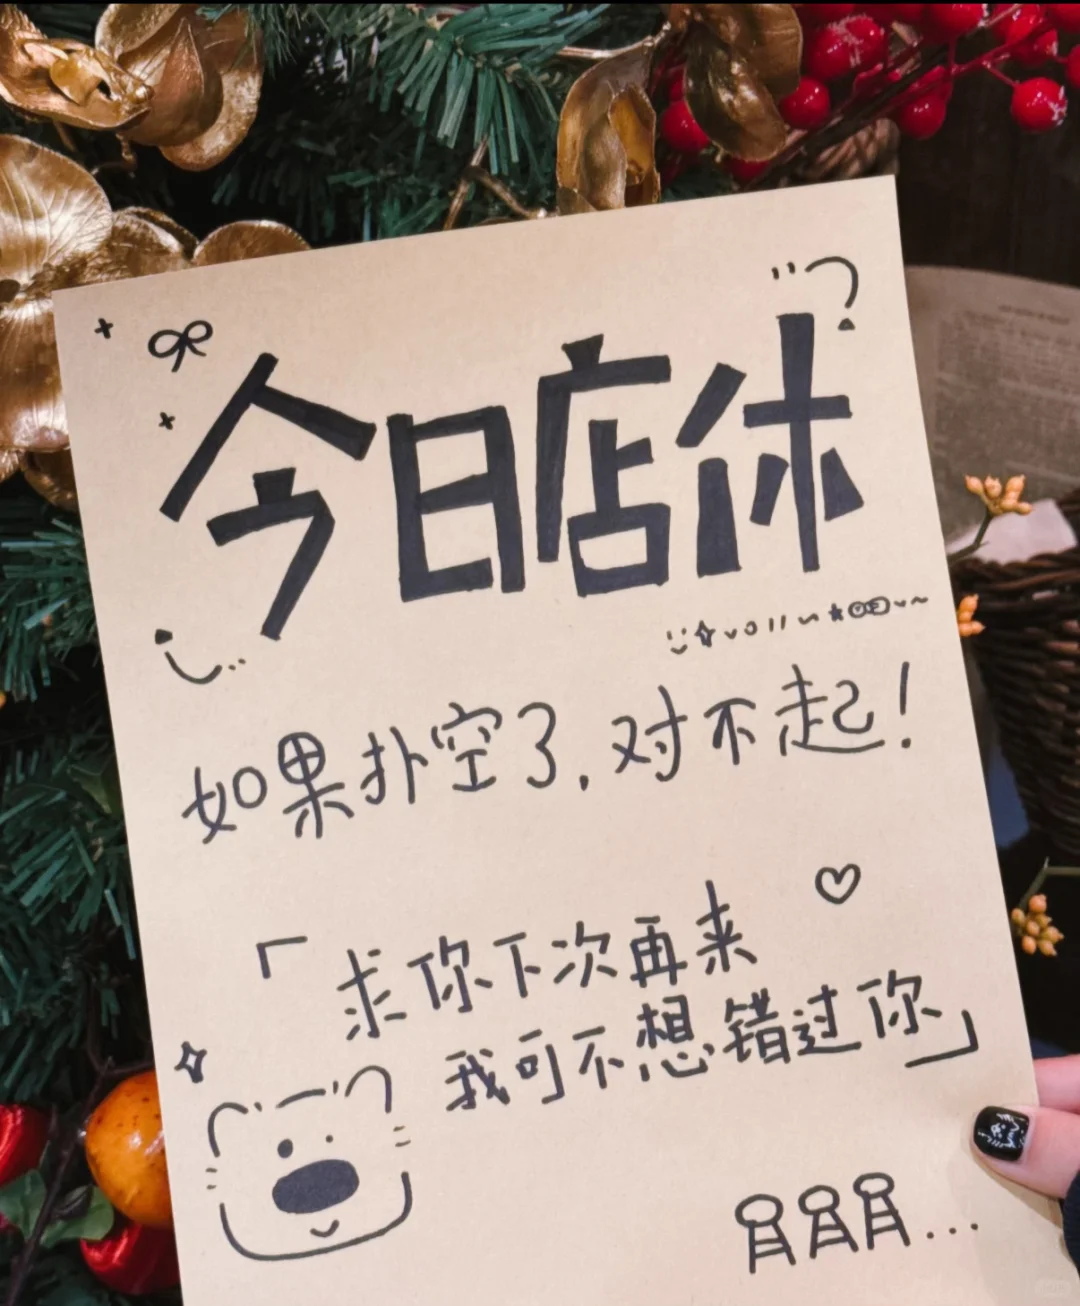 今日店休
如果扑空了,对不起!
「求你下次再来
我可不想错过你」